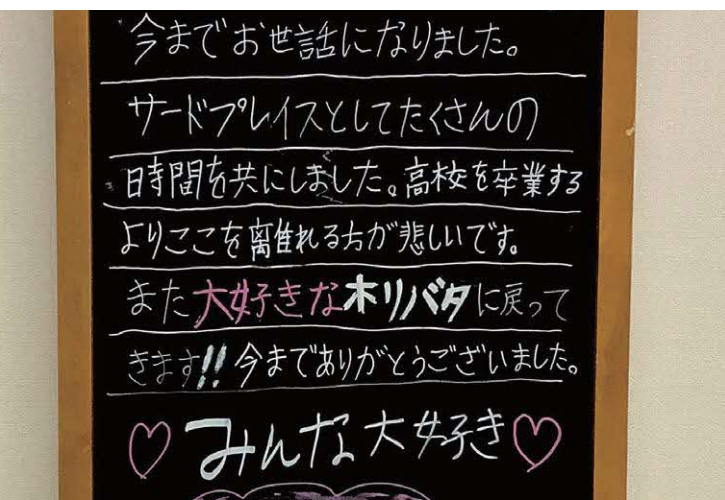 今までお世話になりました。
サードプレイスとしてたくさんの
時間を共にしました。高校を卒業する
よりここを離れる方が悲しいです。
また大好きなホリバタに戻って
きます!!今までありがとうございました。
♡みんな大好き♡